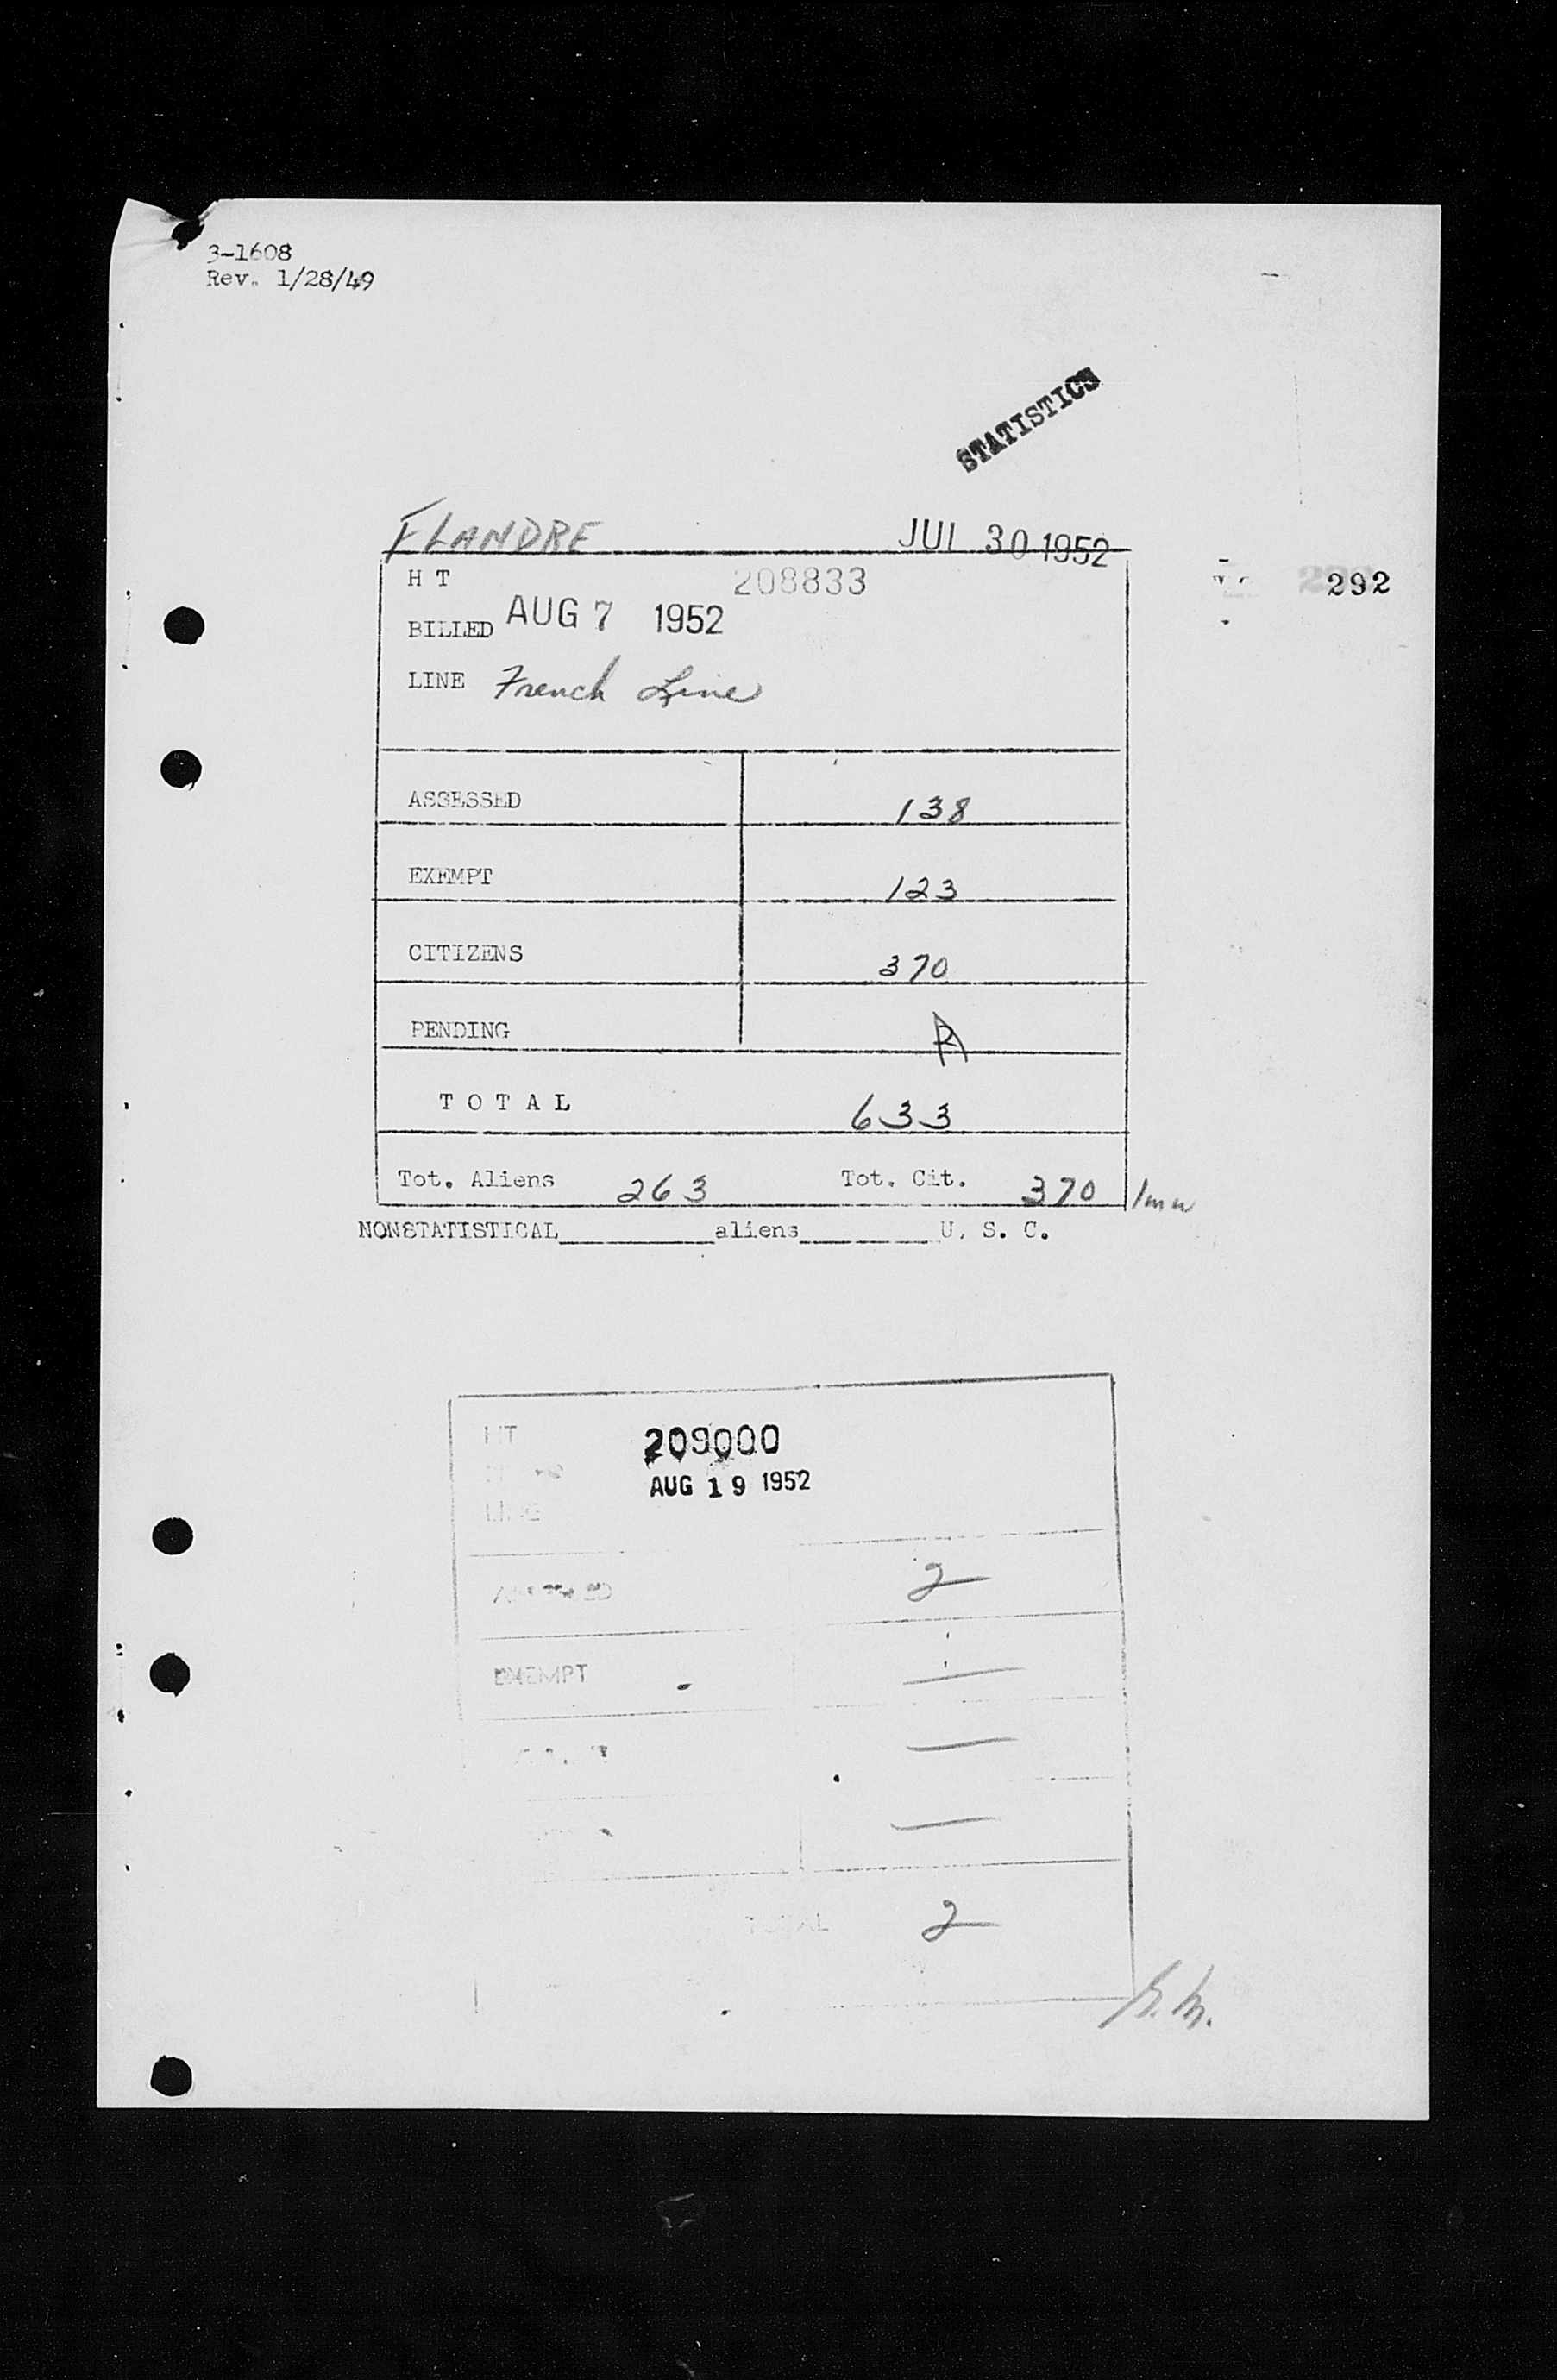 3-1608
Rev. 1/28/49
STATISTICS
FLANDRE JUL 30 1952
H T 208833
292
BILLED AUG 7 1952
LINE French Line
ASSESSED 138
EXEMPT 123
CITIZENS 370
PENDING 2
T O T A L 633
Tot. Aliens 263 Tot. Cit. 370
NONSTATISTICAL__________aliens________U. S. C.
HT 209000
AUG 19 1952
LINE
2
EXEMPT —
—
—
TOTAL 2